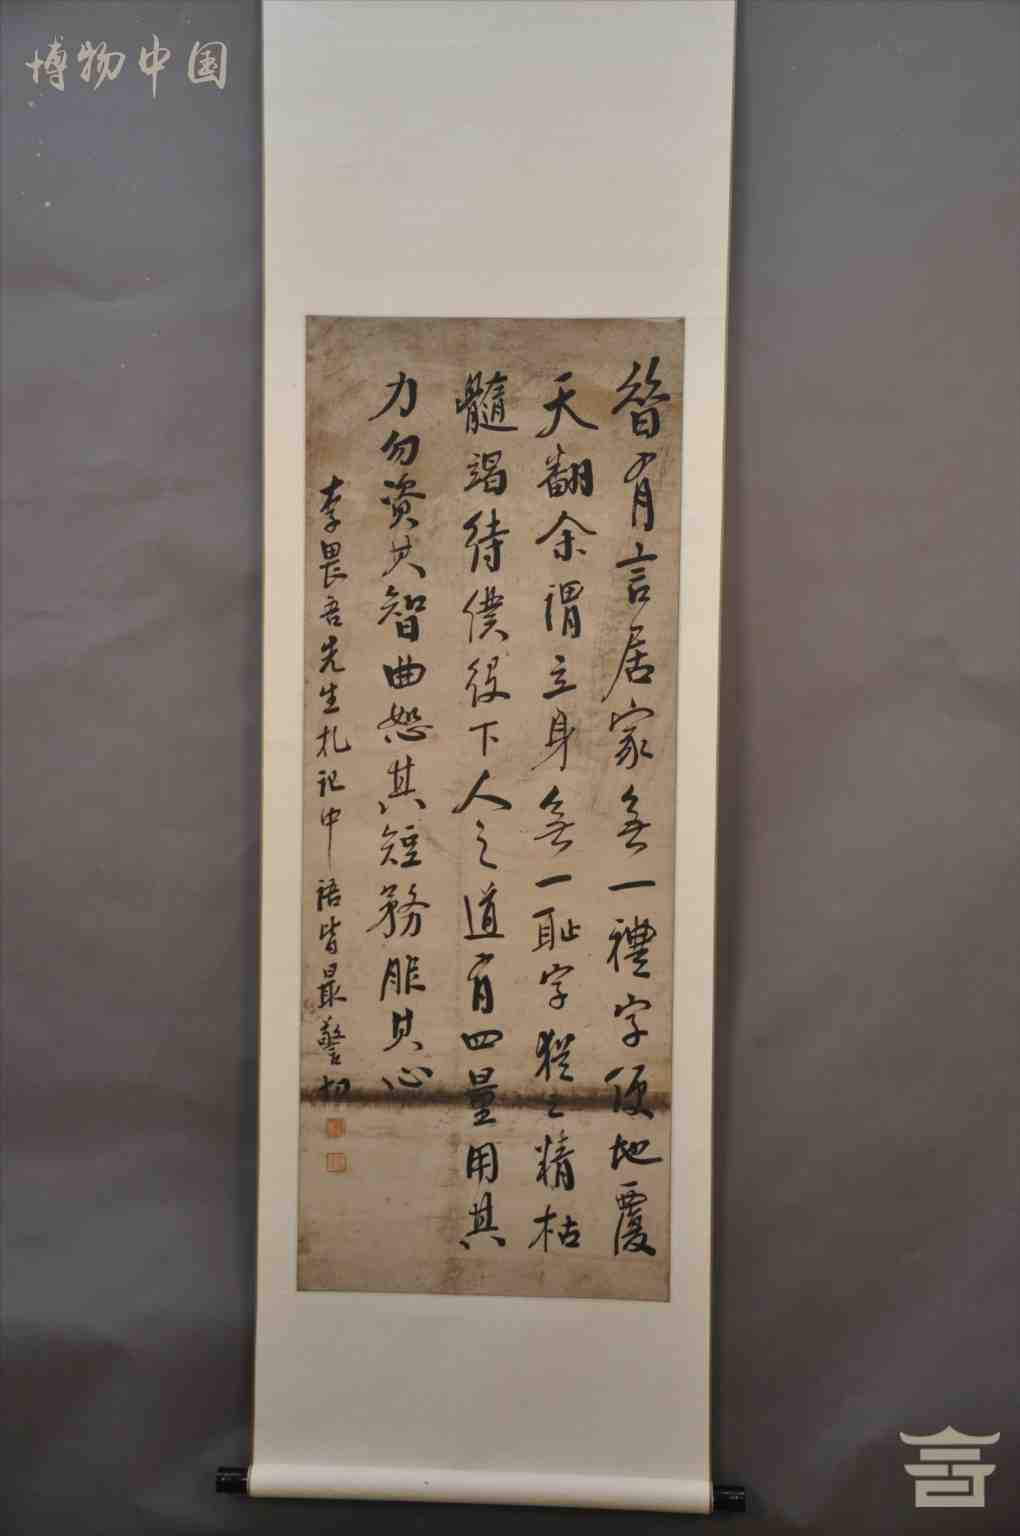 博物中国
昝有言居家無一禮字便地覆
天翻余謂立身無一恥字猶之精枯
髓竭待僕役下人之道有四量用其
力勿資其智曲恕其短務服其心
李畏吾先生札記中語皆最警切